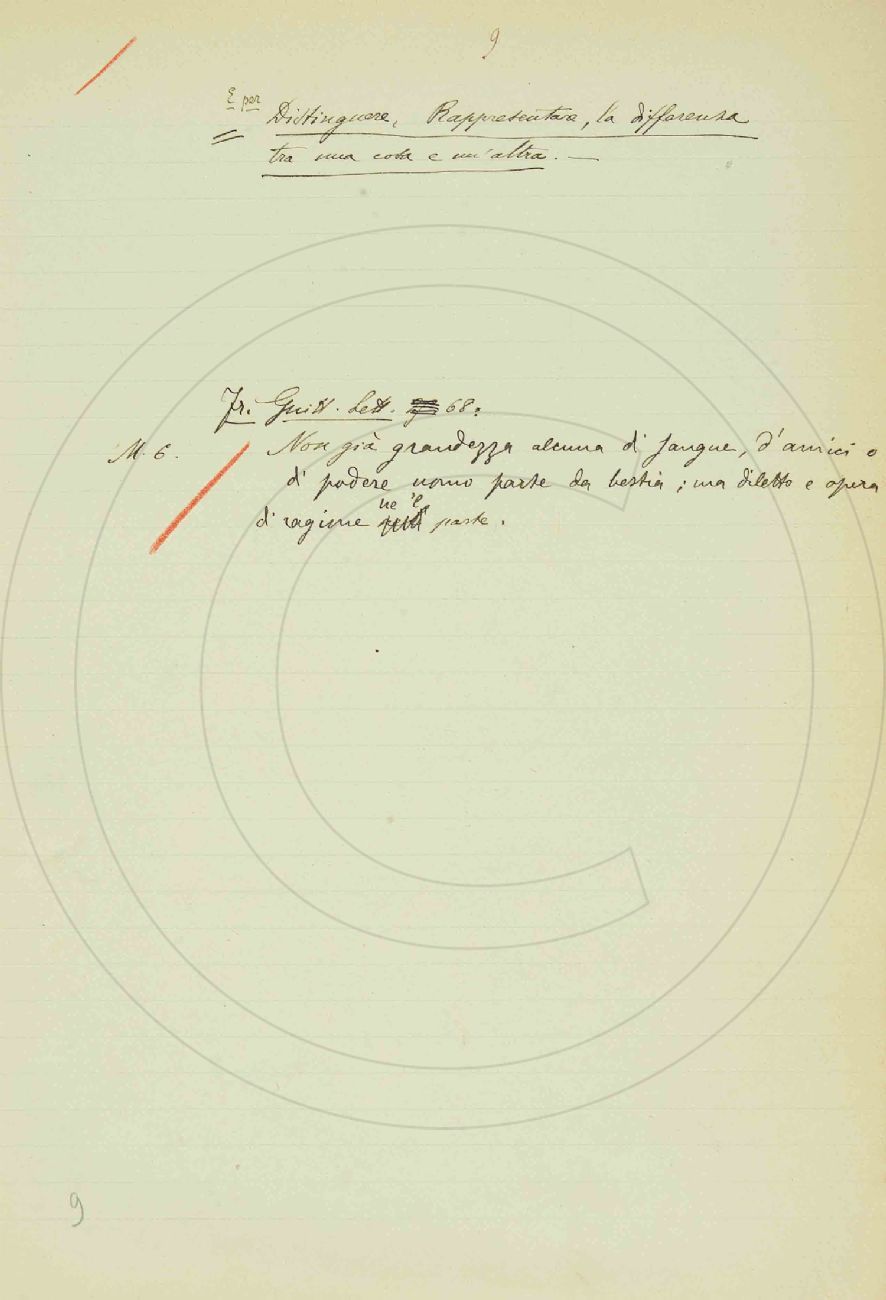 9
E per
= Distinguere, Rappresentare, la differenza
tra una cosa e un'altra. —
Fr. Guitt. Lett. 68.
M. 6. Non già grandezza alcuna di sangue, d'amici o
di podere uomo parte da bestia; ma diletto e opera
di ragione ne 'l parte.
9